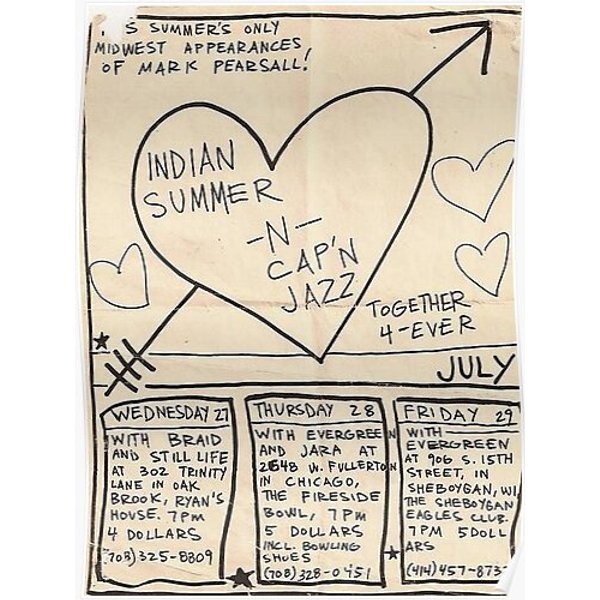 S SUMMER'S ONLY
MIDWEST APPEARANCES
OF MARK PEARSALL!
INDIAN
SUMMER
-N-
CAP'N
JAZZ
TOGETHER
4-EVER
JULY
WEDNESDAY 27
WITH BRAID
AND STILL LIFE
AT 302 TRINITY
LANE IN OAK
BROOK, RYAN'S
HOUSE. 7PM
4 DOLLARS
(708) 325-8809
THURSDAY 28
WITH EVERGREEN
AND JARA AT
2648 W. FULLERTON
IN CHICAGO,
THE FIRESIDE
BOWL, 7PM
5 DOLLARS
INCL. BOWLING
SHOES
(708) 328-0451
FRIDAY 29
WITH
EVERGREEN
AT 906 S. 15TH
STREET, IN
SHEBOYGAN, WI,
THE SHEBOYGAN
EAGLES CLUB.
7PM 5 DOLL
ARS
(414) 457-873